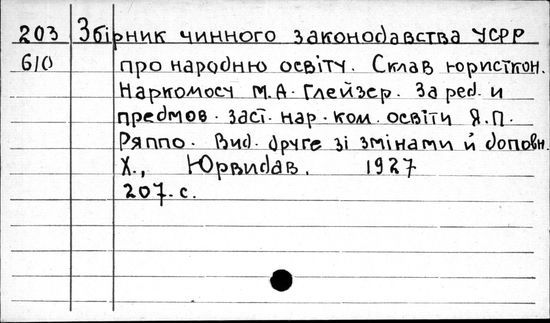 203 Збірник чинного законодавства УСРР
610 про народню освіту. Склав юристкон.
Наркомосу М.А. Глейзер. За ред. и
предмов. заст. нар. ком. освіти Я.П.
Ряппо. Вид. друге зі змінами й доповн.
Х., Юрвидав. 1927
207. с.